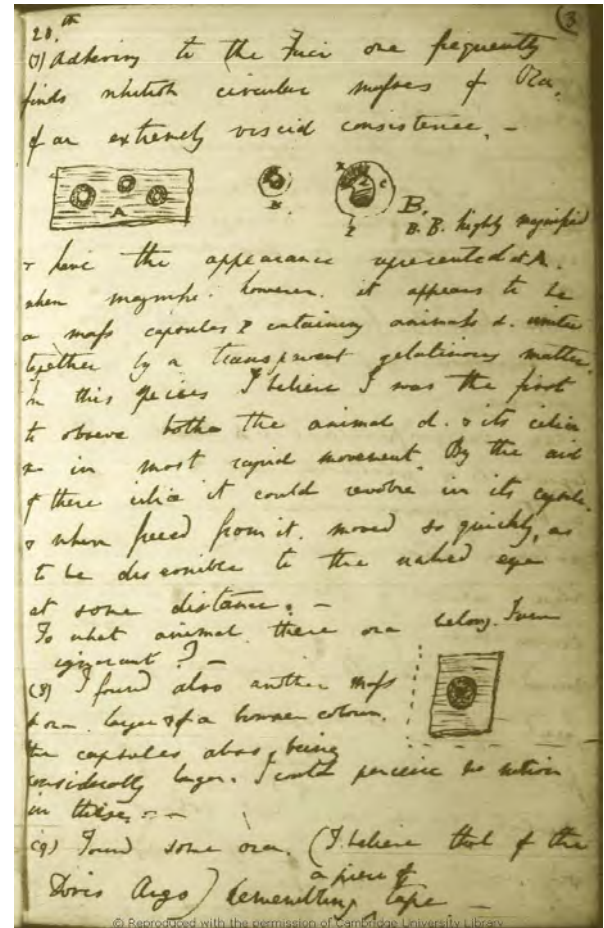 28.th
③
(7) Adhering to the Fuci one frequently
finds whitish circular masses of Ova,
of an extremely viscid consistence. –
A
B
x
c
B.
B. B. highly magnified
& have the appearance represented at A.
when magnife. however. it appears to be
a mass capsules & containing animals d. united
together by a transparent gelatinous matter.
In this species I believe I was the first
to observe both the animal d. & its cilia
in most rapid movement. By the aid
of these cilia it could revolve in its capsule.
& when freed from it. moved so quickly, as
to be discernible to the naked eye
at some distance. –
To what animal these ova belong. I am
ignorant? –
(8) I found also another mass
larger & of a browner colour.
the capsules also being
considerably larger. I could perceive no motion
in these. –
(9) Found some ova. (I believe that of the
Doris Argo) resembling a piece of tape –
© Reproduced with the permission of Cambridge University Library